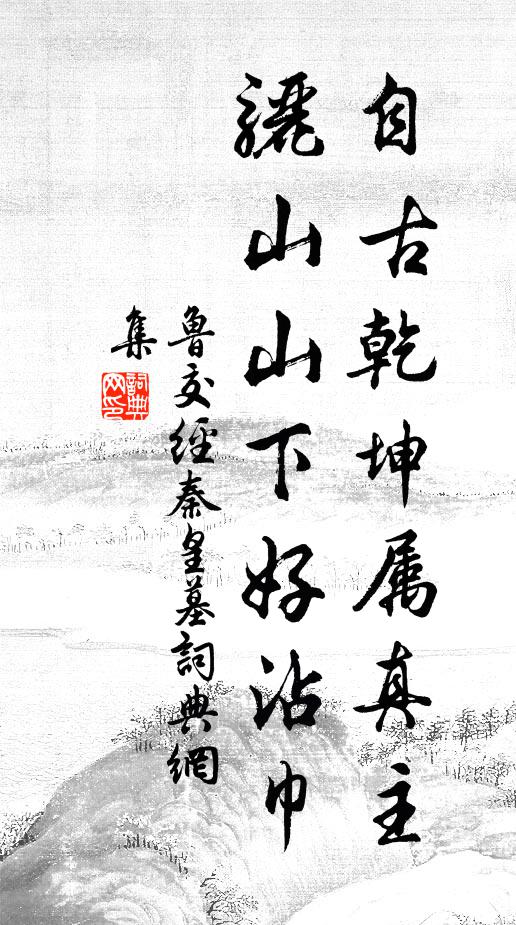 自古乾坤属真主
驪山山下好沾巾
魯交經秦皇墓詞典網
集
詞典
网印